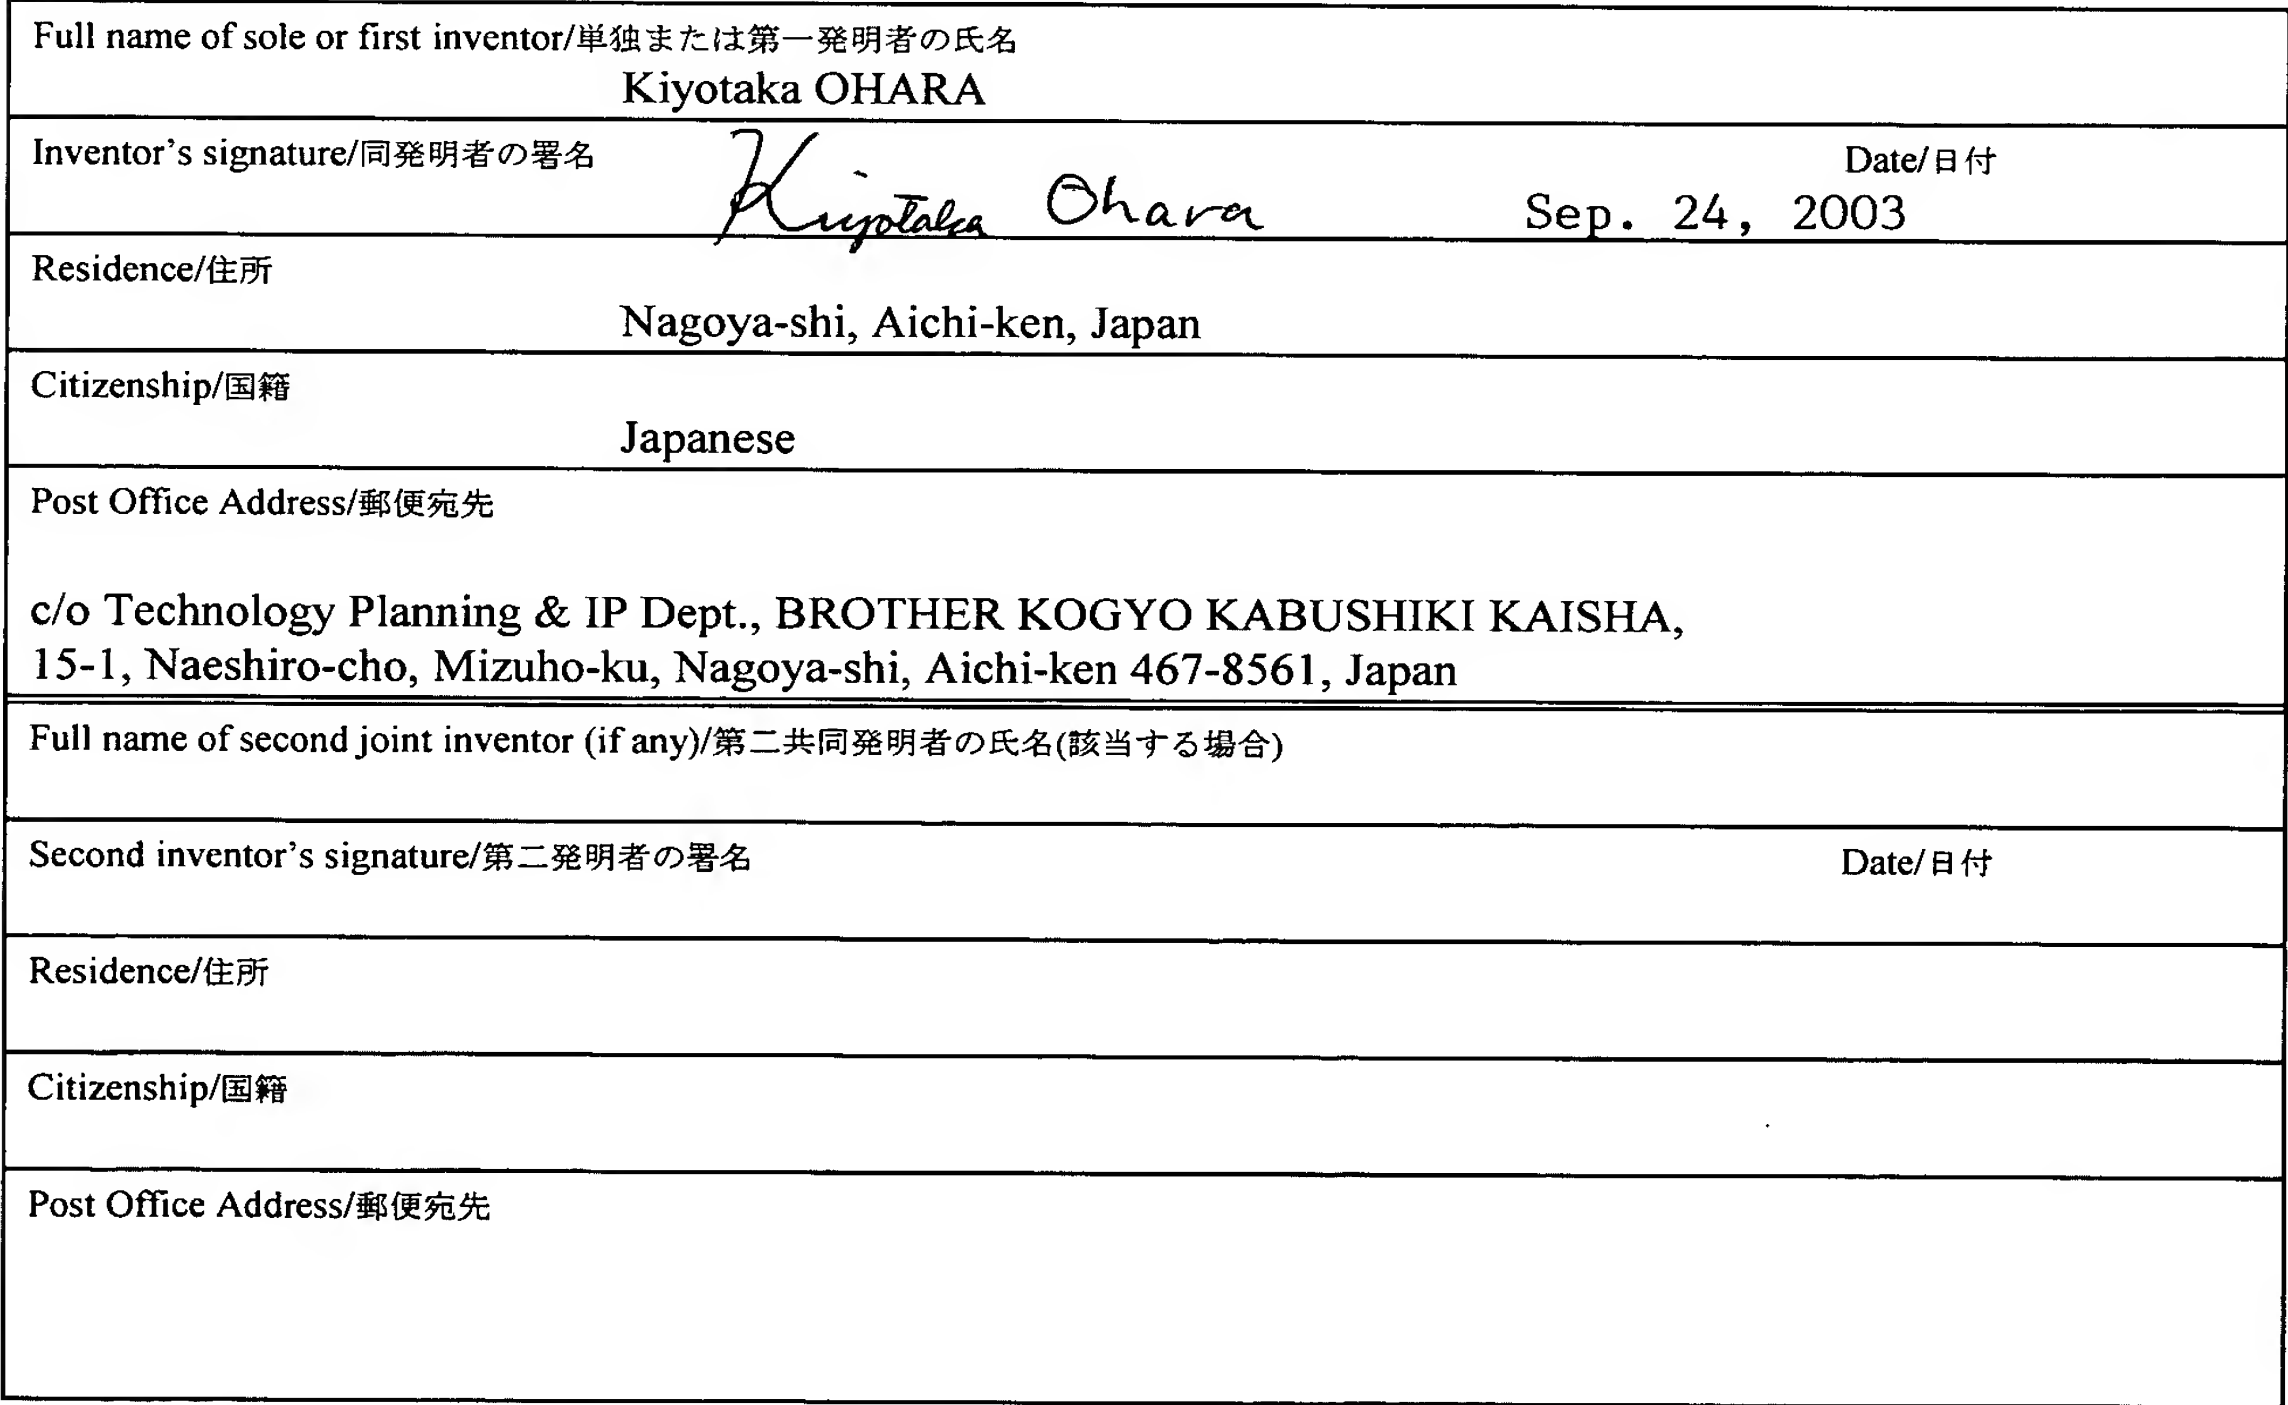 Full name of sole or first inventor/単独または第一発明者の氏名
Kiyotaka OHARA
Inventor's signature/同発明者の署名
Date/日付
Kiyotaka Ohara
Sep. 24, 2003
Residence/住所
Nagoya-shi, Aichi-ken, Japan
Citizenship/国籍
Japanese
Post Office Address/郵便宛先
c/o Technology Planning & IP Dept., BROTHER KOGYO KABUSHIKI KAISHA,
15-1, Naeshiro-cho, Mizuho-ku, Nagoya-shi, Aichi-ken 467-8561, Japan
Full name of second joint inventor (if any)/第二共同発明者の氏名(該当する場合)
Second inventor's signature/第二発明者の署名
Date/日付
Residence/住所
Citizenship/国籍
Post Office Address/郵便宛先